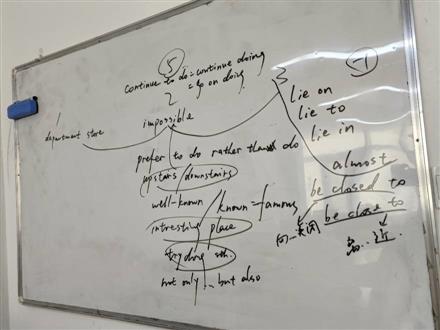 5
continue to do = continue doing
= go on doing
impossible
department store
prefer to do rather than do
upstairs / downstairs
well-known / known = famous
intresting place
try doing sth.
not only ... but also
-1
lie on
lie to
lie in
almost
be closed to
be close to
向…关闭
离…近